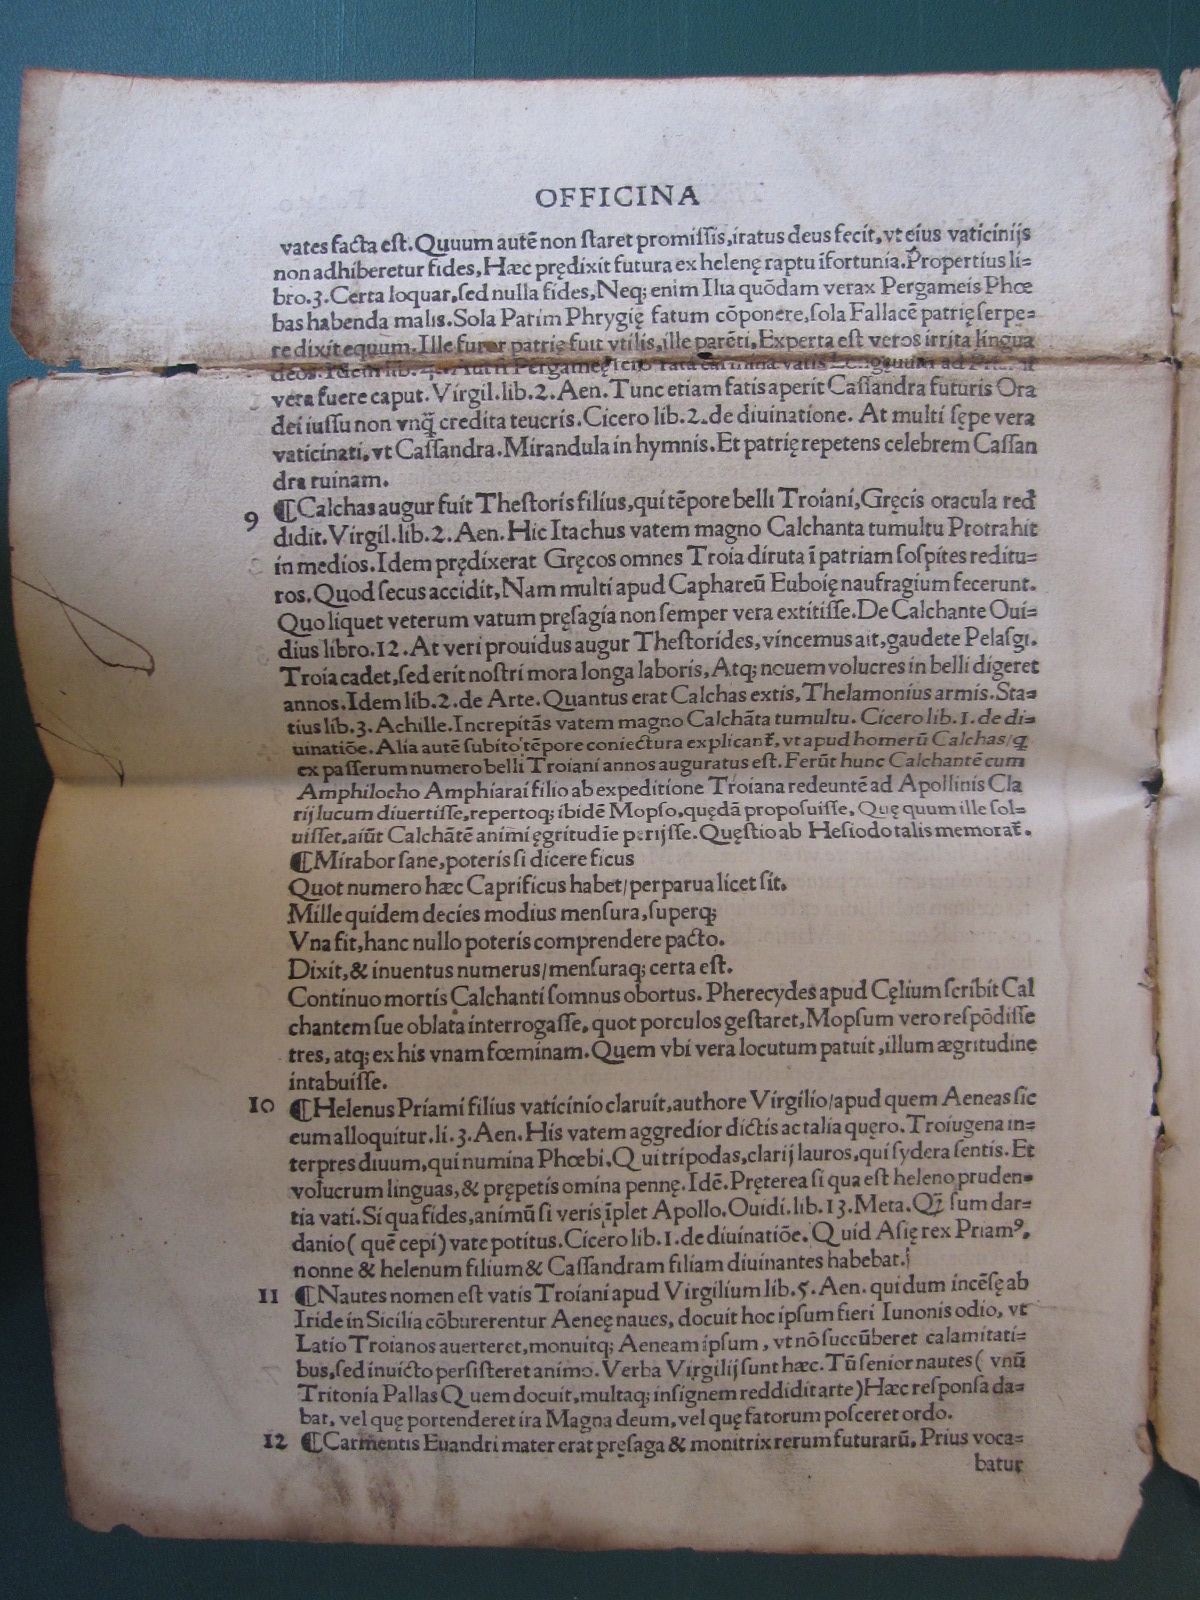 OFFICINA
vates facta eſt. Quum autē non ſtaret promiſſis, iratus deus fecit, vt eius vaticinijs
non adhiberetur fides, Hæc prędixit futura ex helenę raptu īfortunia. Propertius li=
bro. 3. Certa loquar, ſed nulla fides, Neq; enim Ilia quōdam verax Pergameis Phœ
bas habenda malis. Sola Parim Phrygię fatum cōponere, ſola Fallacē patrię ſerpe=
re dixit equum. Ille furor patrię fuit vtilis, ille parēti, Experta eſt veros irrita lingua
deos. Idem lib. 4. Pergameę rata carmina vatis Longęuum ad
vera fuere caput. Virgil. lib. 2. Aen. Tunc etiam fatis aperit Caſſandra futuris Ora
dei iuſſu non vnq̄ credita teucris. Cicero lib. 2. de diuinatione. At multi ſępe vera
vaticinati, vt Caſſandra. Mirandula in hymnis. Et patrię repetens celebrem Caſſan
dra ruinam.
9 ¶Calchas augur fuit Theſtoris filius, qui tēpore belli Troiani, Gręcis oracula red
didit. Virgil. lib. 2. Aen. Hic Itachus vatem magno Calchanta tumultu Protrahit
in medios. Idem prędixerat Gręcos omnes Troia diruta ī patriam ſoſpites reditu=
ros. Quod ſecus accidit, Nam multi apud Caphareū Euboię naufragium fecerunt.
Quo liquet veterum vatum pręſagia non ſemper vera extitiſſe. De Calchante Oui=
dius libro. 12. At veri prouidus augur Theſtorides, vincemus ait, gaudete Pelaſgi.
Troia cadet, ſed erit noſtri mora longa laboris, Atq; nouem volucres in belli digeret
annos. Idem lib. 2. de Arte. Quantus erat Calchas extis, Thelamonius armis. Sta=
tius lib. 3. Achille. Increpitās vatem magno Calchāta tumultu. Cicero lib. 1. de di=
uinatiōe. Alia autē ſubito tēpore coniectura explicant̄, vt apud homerū Calchas/q̄
ex paſſerum numero belli Troiani annos auguratus eſt. Ferūt hunc Calchantē cum
Amphilocho Amphiarai filio ab expeditione Troiana redeuntē ad Apollinis Cla
rij lucum diuertiſſe, repertoq; ibidē Mopſo, quędā propoſuiſſe, Quę quum ille ſol=
uiſſet, aiūt Calchātē animi ęgritudīe perijſſe. Quęſtio ab Heſiodo talis memorat̄.
¶Mirabor ſane, poteris ſi dicere ficus
Quot numero hæc Caprificus habet/perparua licet ſit.
Mille quidem decies modius menſura, ſuperq;
Vna fit, hanc nullo poteris comprendere pacto.
Dixit, & inuentus numerus/menſuraq; certa eſt.
Continuo mortis Calchanti ſomnus obortus. Pherecydes apud Cęlium ſcribit Cal
chantem ſue oblata interrogaſſe, quot porculos geſtaret, Mopſum vero reſpōdiſſe
tres, atq; ex his vnam fœminam. Quem vbi vera locutum patuit, illum ægritudine
intabuiſſe.
10 ¶Helenus Priami filius vaticinio claruit, authore Virgilio/apud quem Aeneas ſic
eum alloquitur. li. 3. Aen. His vatem aggredior dictis ac talia quęro. Troiugena in=
terpres diuum, qui numina Phœbi. Qui tripodas, clarij lauros, qui ſydera ſentis. Et
volucrum linguas, & prępetis omina pennę. Idē. Pręterea ſi qua eſt heleno pruden=
tia vati. Si qua fides, animū ſi veris īplet Apollo. Ouidi. lib. 13. Meta. Q̄ ſum dar=
danio (quē cepi) vate potitus. Cicero lib. 1. de diuinatiōe. Quid Aſię rex Priamꝰ,
nonne & helenum filium & Caſſandram filiam diuinantes habebat.
11 ¶Nautes nomen eſt vatis Troiani apud Virgilium lib. 5. Aen. qui dum incēſę ab
Iride in Sicilia cōburerentur Aeneę naues, docuit hoc ipſum fieri Iunonis odio, vt
Latio Troianos auerteret, monuitq; Aeneam ipſum, vt nō ſuccūberet calamitati=
bus, ſed inuicto perſiſteret animo. Verba Virgilij ſunt hæc. Tū ſenior nautes (vnū
Tritonia Pallas Quem docuit, multaq; inſignem reddidit arte) Hæc reſponſa da=
bat, vel quę portenderet ira Magna deum, vel quę fatorum poſceret ordo.
12 ¶Carmentis Euandri mater erat pręſaga & monitrix rerum futurarū. Prius voca=
batur